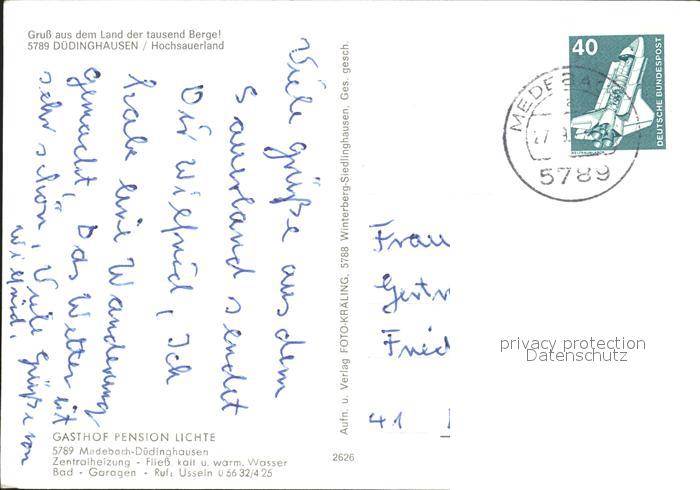 Gruß aus dem Land der tausend Berge!
5789 DÜDINGHAUSEN / Hochsauerland
Viele grüße aus dem
Sauerland sendet
Dir wilfrid, Ich
habe eine Wanderung
gemacht, Das Wetter ist
sehr schön, Viele grüße von
wilfrid.
GASTHOF PENSION LICHTE
5789 Medebach-Düdinghausen
Zentralheizung - Fließ kalt u. warm. Wasser
Bad - Garagen - Ruf: Usseln 0 56 32/4 25
Aufn. u. Verlag FOTO-KRÄLING, 5788 Winterberg-Siedlinghausen, Ges. gesch.
2626
40
DEUTSCHE BUNDESPOST
MEDEBA
5789
Frau
Gertr
Fried
41
privacy protection
Datenschutz